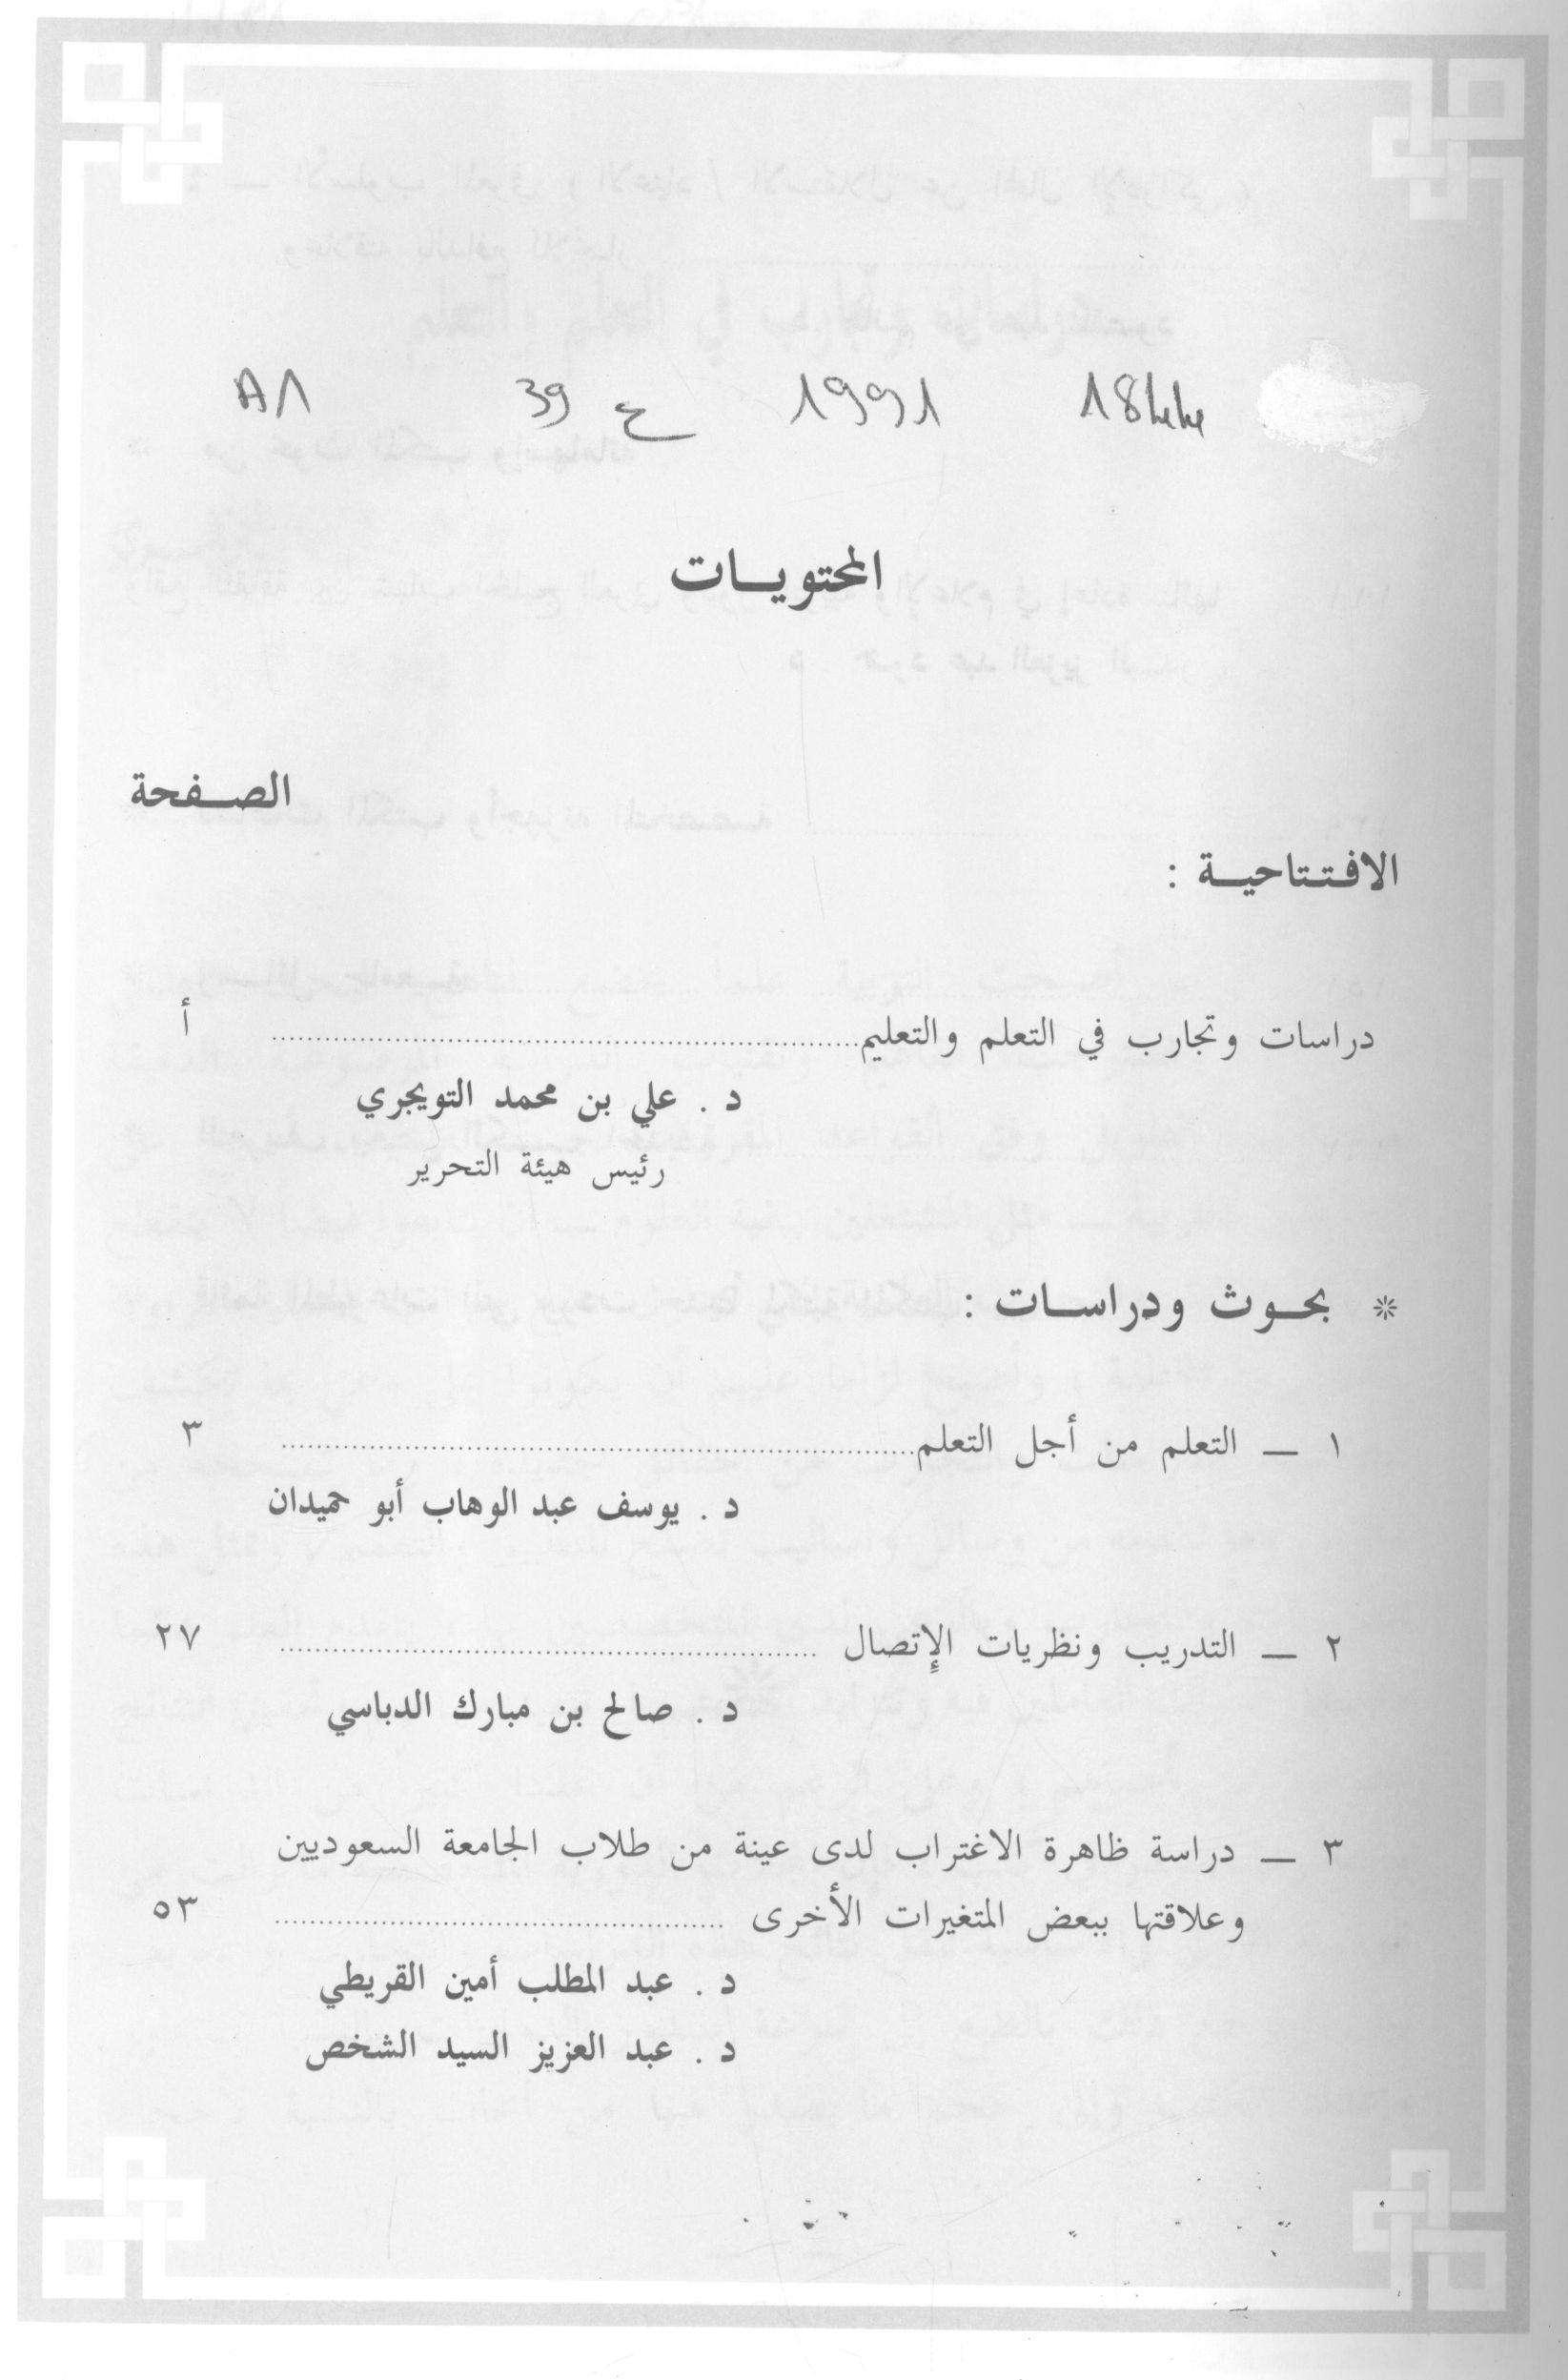 1991 ع 39 A1
المحتويات
الصفحة
الافتتاحية :
دراسات وتجارب في التعلم والتعليم ........ أ
د . علي بن محمد التويجري
رئيس هيئة التحرير
* بحوث ودراسات :
١ ــ التعلم من أجل التعلم ........ ٣
د . يوسف عبد الوهاب أبو حميدان
٢ ــ التدريب ونظريات الإتصال ........ ٢٧
د . صالح بن مبارك الدباسي
٣ ــ دراسة ظاهرة الاغتراب لدى عينة من طلاب الجامعة السعوديين
وعلاقتها ببعض المتغيرات الأخرى ........ ٥٣
د . عبد المطلب أمين القريطي
د . عبد العزيز السيد الشخص